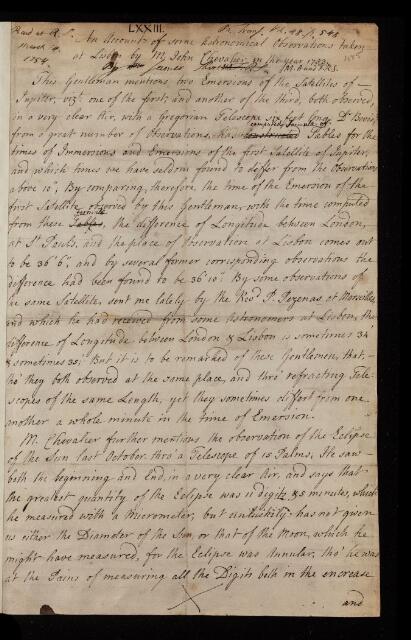 LXXIII.
Read at R.S.
March 4.
1754.
Ph. Trans. Vol. 48. p. 548
An Account of some Astronomical Observations taken
at Lisbon by Mr. John Chevalier in the year 1753
By James
This Gentleman mentions two Emersions of the Satellites of
Jupiter, viz. one of the first, and another of the third, both observed,
in a very clear Air, with a Gregorian Telescope six feet long. Dr. Bevis,
computed formulæ or
from a great number of Observations, has constructed Tables for the
times of Immersions and Emersions of the first Satellite of Jupiter,
and which times we have seldom found to differ from the Observations
above 10". By comparing, therefore the time of the Emersion of the
first Satellite observed by this Gentleman, with the time computed
formulæ
from these Tables, the difference of Longitude between London,
at St. Pauls, and the place of Observation at Lisbon comes out
to be 36' 6", and by several former corresponding observations the
difference had been found to be 36' 10". By some observations of
the same Satellite, sent me lately by the Revd. P. Pezenas, at Marseilles,
and which he had received from some Astronomers at Lisbon, the
difference of Longitude between London & Lisbon is sometimes 34'
& sometimes 35'. But it is to be remarked of these Gentlemen, that,
tho' they both observed at the same place, and thro' refracting Tele-
scopes of the same Length, yet they sometimes differt from one
another a whole minute in the time of Emersion.
Mr. Chevalier further mentions the observation of the Eclipse
of the Sun last October. thro' a Telescope of 10 Palms, He saw
both the beginning and End, in a very clear Air, and says that
the greatest quantity of the Eclipse was 11 digits & 5 minutes, which
he measured with a Micrometer, but unluckily has not given
us either the Diameter of the Sun, or that of the Moon, which he
might have measured, for the Eclipse was Annular, tho' he was
at the Pains of measuring all the Digits both in the encrease
and